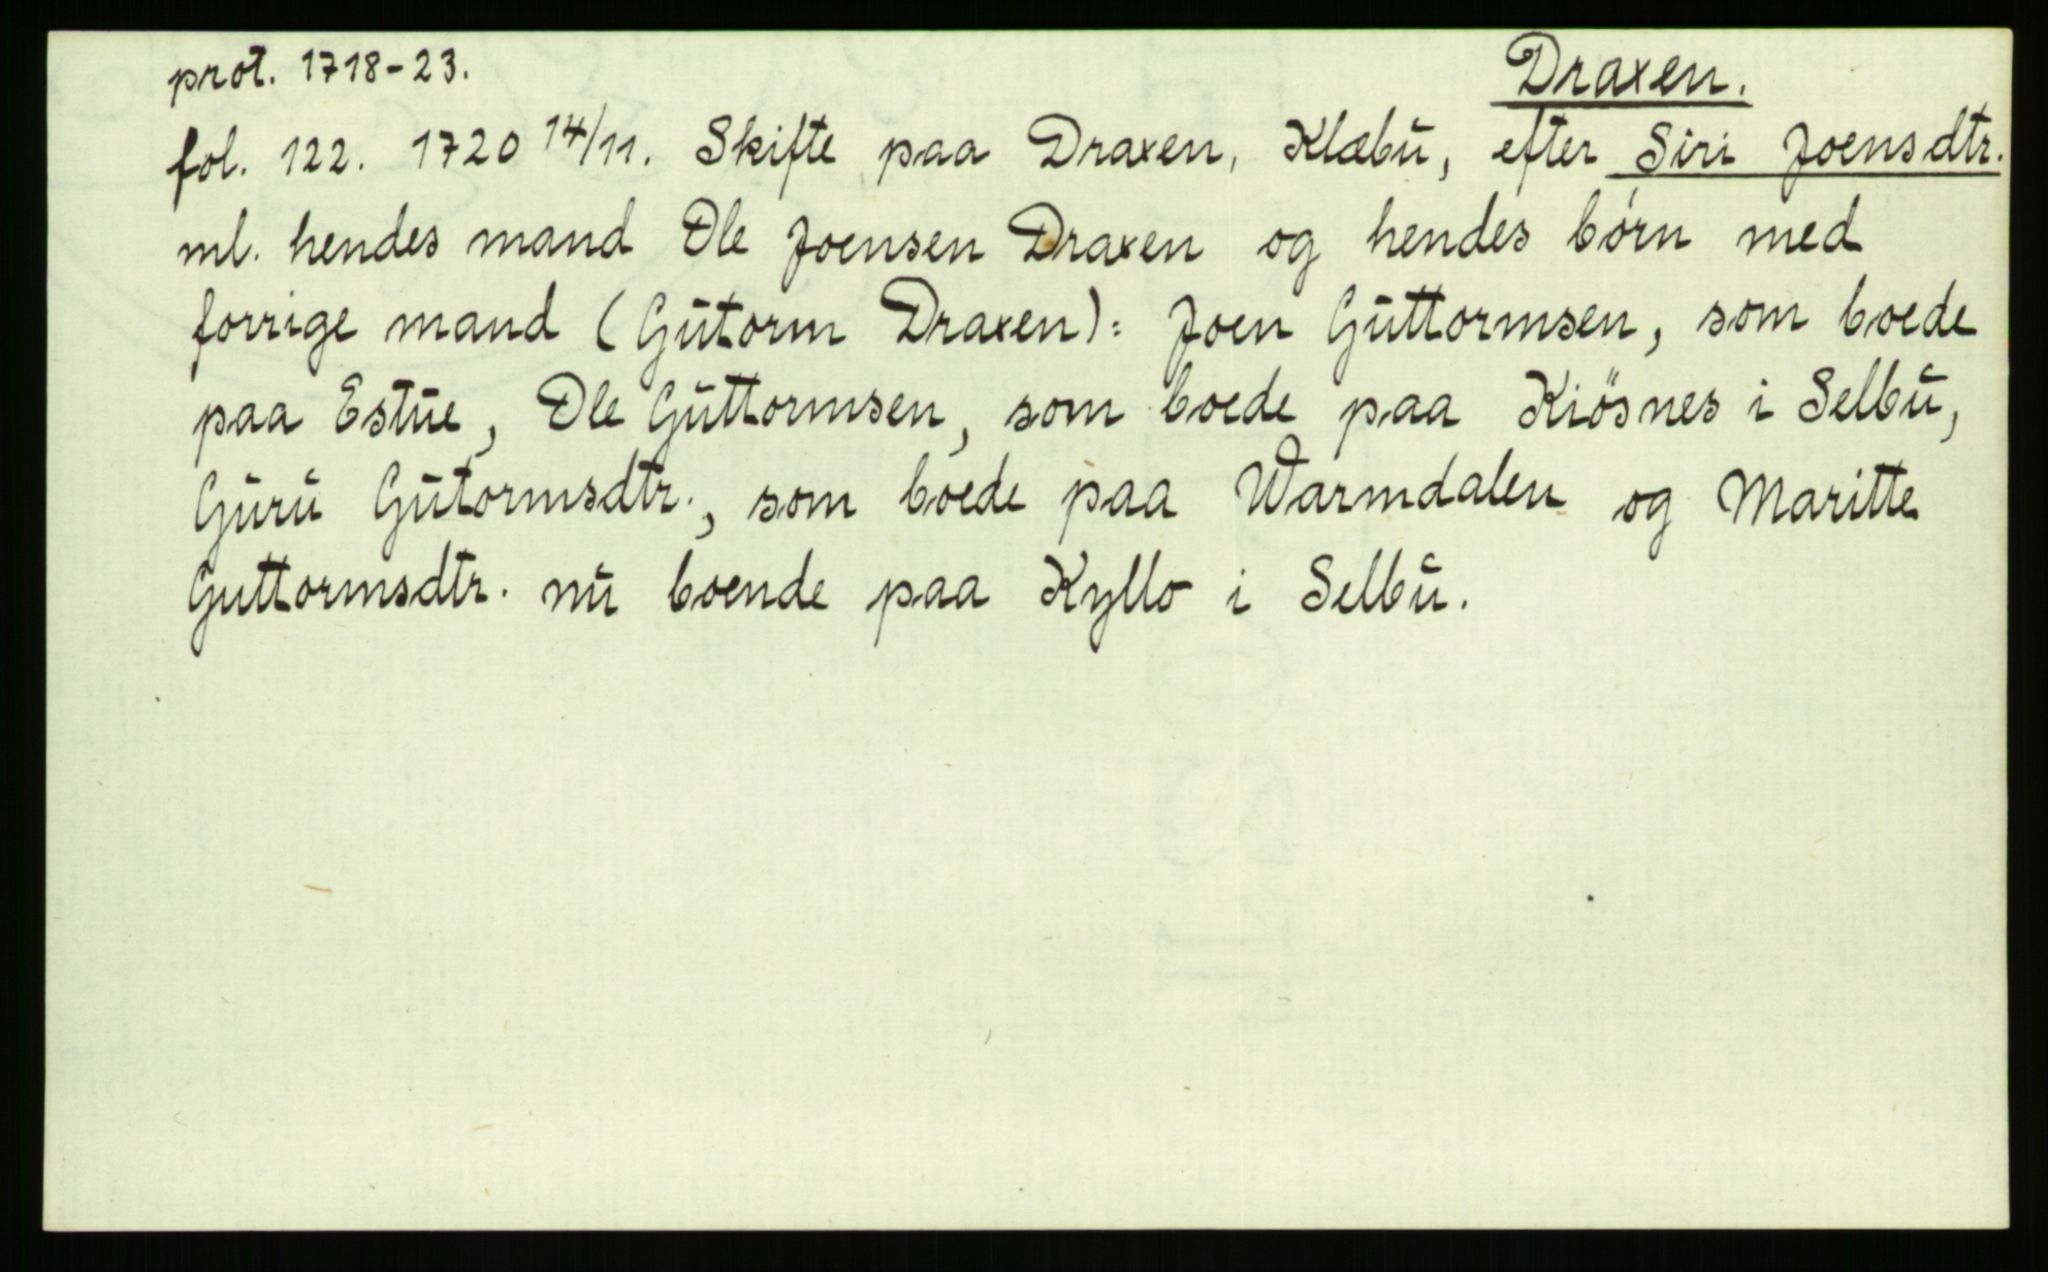 prot. 1718-23.
Draxen.
fol. 122. 1720 14/11. Skifte paa Draxen, Klæbū, efter Siri Joensdtr.
ml. hendes mand Ole Joensen Draxen og hendes børn med
forrige mand (Gūtorm Draxen): Joen Gūttormsen, som boede
paa Estūe, Ole Gūttormsen, som boede paa Kiösnes i Selbū,
Gūrū Gūtormsdtr., som boede paa Warmdalen og Maritte
Guttormsdtr. nū boende paa Kyllo i Selbū.